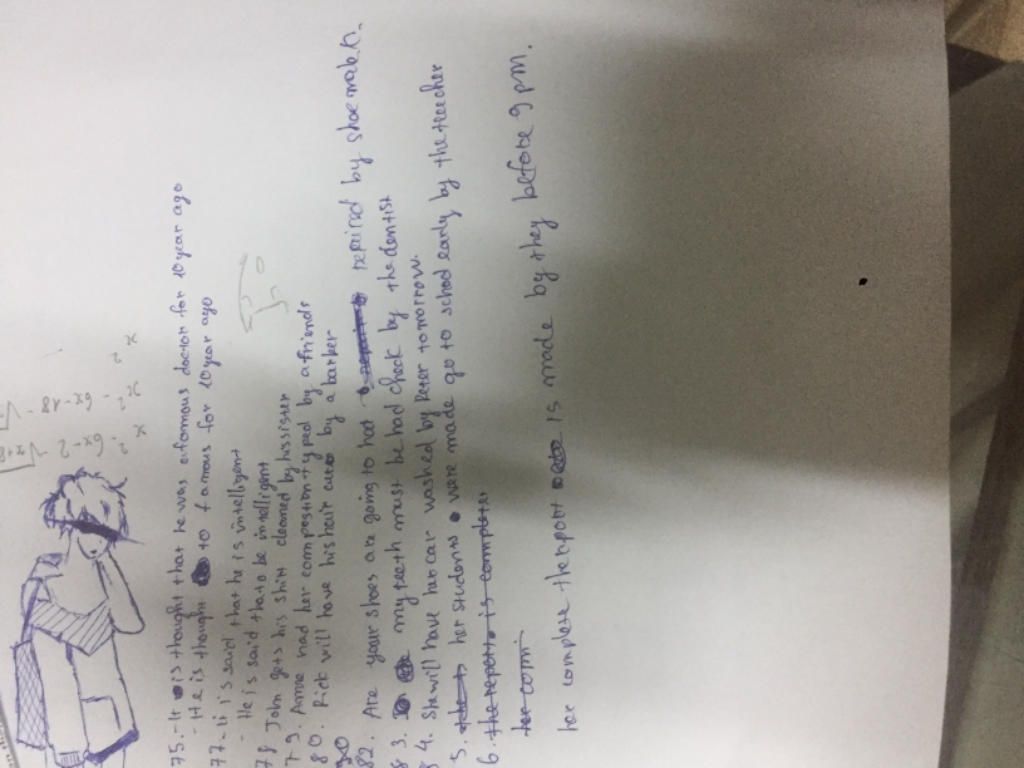 75. - It is thought that he was a famous doctor for 10 year ago
- He is thought to famous for 10 year ago
77. - it is said that he is intelligent
- He is said that to be intelligent
78 John gets his shirt cleaned by hissister
79. Anne had her compostion typed by a friends
80. Rick will have his hair cut by a barber
82. Are your shoes are going to had repaired by shoemaker.
83. my teeth must be had check by the dentist
84. She will have her car washed by Peter tomorrow.
5. her students were made go to school early by the teacher
6. the report is complete
her comm
her complete the report is made by they before 9 pm.
x² - 6x - 2
x² - 6x - 18 -
x²